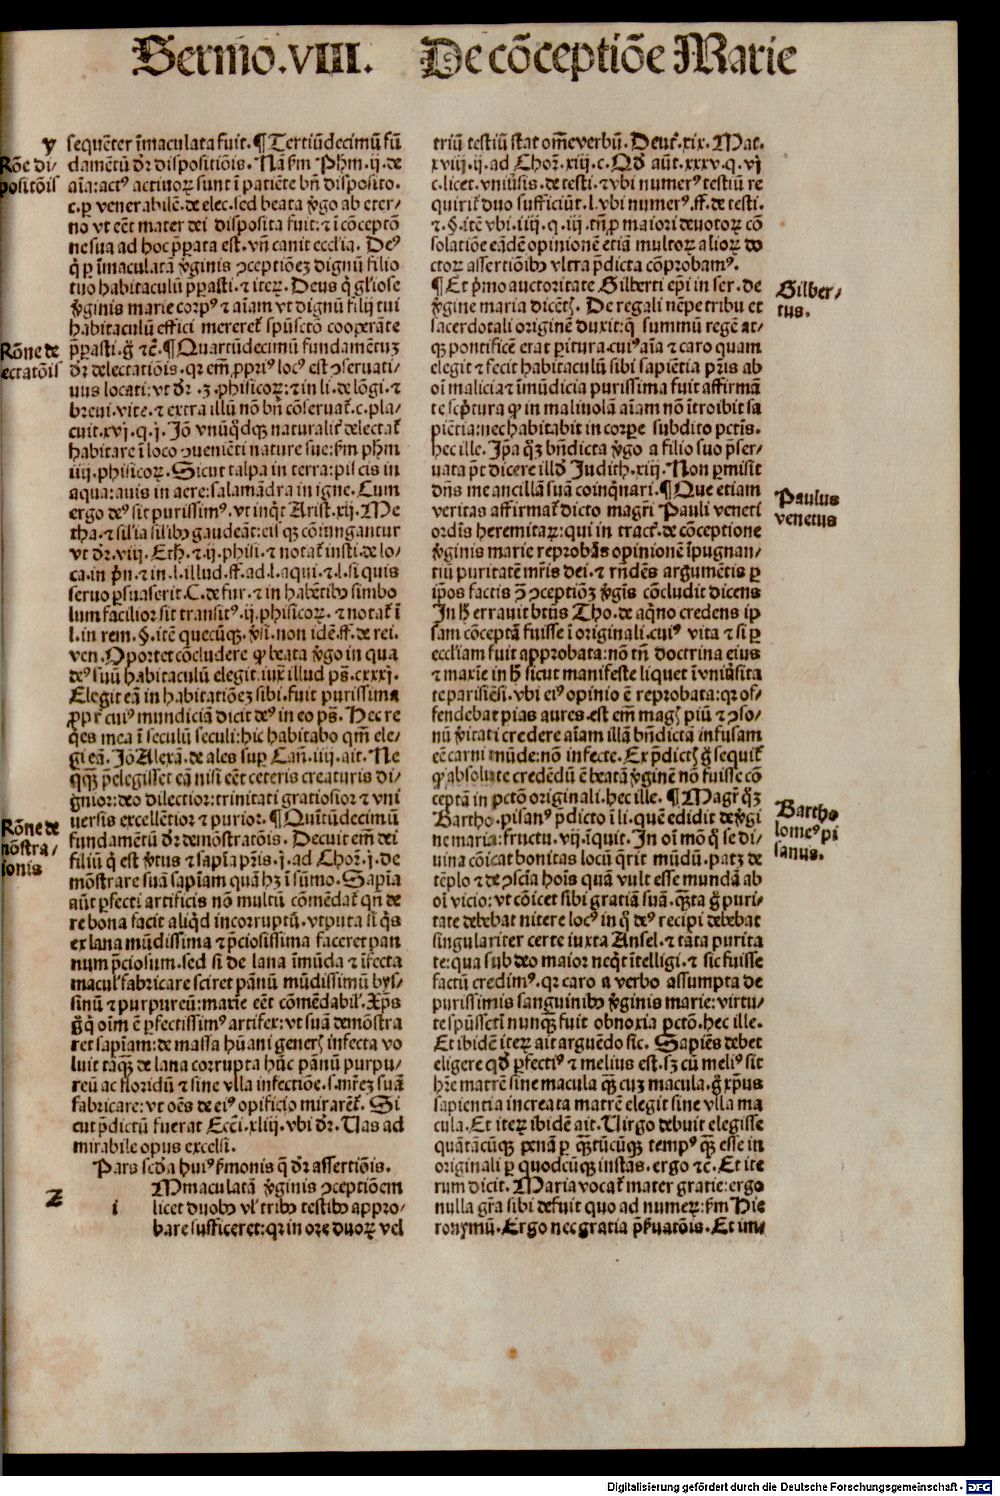 Sermo.VIII. De cōceptiōe Marie
y
Rōe di-
positōis
sequēter īmaculata fuit. ¶ Tertiūdecimū fū
damētū dr̄ dispositiōis. Nā ẜm Phm̄.ij.de
aīa: actꝰ actiuoꝝ sunt ī patiēte bn̄ disposito.
c.ꝑ venerabilē.de elec.sed beata v̓go ab eter-
no vt eēt mater dei disposita fuit: ⁊ ī cōceptō
ne sua ad hoc p̄parata est. vn̄ canit eccl̄ia. Deꝰ
q̓ ꝑ īmaculatā v̓ginis ꝯceptiōeꝫ dignū filio
tuo habitaculū p̄parasti.⁊ iteꝝ. Deus q̓ gl̓iose
v̓ginis marie corpꝰ ⁊ aīam vt dignū filij tui
habitaculū effici mereret̄ spūsctō cooperāte
Rōne de
ectatōis
p̄parasti.g̊ ⁊c̄. ¶ Quartūdecimū fundamētuꝫ
dr̄ delectatiōis. qꝛ em̄ ꝓpriꝰ locꝰ est ꝯseruati-
uus locati: vt dr̄.3.phisicoꝝ: ⁊ in li.de lōgi.⁊
breui.vite.⁊ extra illū nō bn̄ cōseruat̄.c.pla-
cuit.xvj.q.j. Jō vnūq̊dqꝫ naturalit̓ delectat̄
habitare ī loco ꝯueniēti nature sue: ẜm phm̄
iiij.phisicoꝝ. Sicut talpa in terra: piscis in
aqua: auis in aere: salamādra in igne. Cum
ergo deꝰ sit purissimꝰ. vt inq̓t Arist̄.xij. Me
tha.⁊ sil̓ia sil̓ibꝰ gaudeāt: eisqꝫ cōiungantur
vt dr̄.viij. Eth.⁊.ij.phisi.⁊ notat̄ insti.de lo-
ca.in pn̄.⁊ in.l.illud.ff.ad.l.aqui.⁊.l.si quis
seruo ꝑsuaserit.C.de fur.⁊ in habētibꝰ simbo
lum facilior sit transitꝰ.ij.phisicoꝝ.⁊ notat̄ ī
l.in rem.§.itē quecūqꝫ.v̓si.non idē.ff.de rei.
ven. Oportet cōcludere ꝙ beata v̓go in qua
deꝰ suū habitaculū elegit: iux̄ illud ps̄.cxxxj.
Elegit eā in habitatiōeꝫ sibi. fuit purissima
ꝓpt̓ cuiꝰ mundiciā dicit deꝰ in eo ps̄. Hec re
q̓es mea ī seculū seculi: hic habitabo qm̄ ele-
gi eā. Jō Alexā.de ales suꝑ Can̄.iiij.ait. Ne
qꝫ p̄elegisset eā nisi eēt ceteris creaturis di-
gnior: deo dilectior: trinitati gratiosior ⁊ vni
Rōne de
mōstra-
ionis
uersis excellētior ⁊ purior. ¶ Quītūdecimū
fundamētū dr̄ demōstratōis. Decuit em̄ dei
filiū q̓ est v̓tus ⁊ sapīa pr̄is.j.ad Chor̄.j.de
mōstrare suā sapīam quā hꝫ ī sūmo. Sapīa
aūt ꝑfecti artificis nō multū cōmēdat̄ qn̄ de
re bona facit aliq̊d incorruptū. vtputa si q̓s
ex lana mūdissima ⁊ p̄ciosissima faceret pan
num p̄ciosum. sed si de lana īmūda ⁊ īfecta
macul̓ fabricare sciret pānū mūdissimū bys-
sinū ⁊ purpureū: maxīe eēt cōmēdabil̓. Xp̄s
g̊ q̓ oīm ē ꝑfectissimꝰ artifex: vt suā demōstra
ret sapīam: de massa hūani gener̓ infecta vo
luit tāqꝫ de lana corrupta hūc pānū purpu-
reū ac floridū ⁊ sine vlla infectiōe.s.mr̄eꝫ suā
fabricare: vt oēs de eiꝰ opificio mirarēt̄. Si
cut p̄dictū fuerat Ecc̄i.xliij.vbi dr̄. Uas ad
mirabile opus excelsi.
Pars scd̓a huiꝰ ẜmonis q̄ dr̄ assertiōis.
Z
i
Mmaculatā v̓ginis ꝯceptiōem
licet duobꝰ vl̓ tribꝰ testibꝰ appro-
bare sufficeret: qꝛ in ore duoꝝ vel
triū testiū stat om̄e verbū. Deut̓.xix. Mat.
xviij.ij.ad Chor̄.xiij.c. Qd̓ aūt.xxxv.q.vj
c.licet.vniūsis.de testi.⁊ vbi numerꝰ testiū re
quirit̄ duo sufficiūt.l.vbi numerꝰ.ff.de testi.
⁊.§.itē vbi.iiij.q.iij.tn̄ ꝓ maiori deuotoꝝ cō
solatiōe eādē opinionē etiā multoꝝ alioꝝ do
ctoꝝ assertiōibꝰ vltra p̄dicta cōprobamꝰ.
Gilber-
tus.
¶ Et pͥmo auctoritate Gilberti ep̄i in ser.de
v̓gine maria dicēt̓. De regali nēpe tribu et
sacerdotali originē duxit: q̄ summū regē at-
qꝫ pontificē erat paritura. cuiꝰ aīa ⁊ caro quam
elegit ⁊ fecit habitaculū sibi sapiētia pr̄is ab
oī malicia ⁊ īmūdicia purissima fuit affirmā
te scͥptura ꝙ in maliuolā aīam nō ītroibit sa
piētia: nec habitabit in corpe subdito pctīs.
hec ille. Jp̄a q̊ꝫ bn̄dicta v̓go a filio suo p̄ser-
uata pōt dicere ill̓d Judith.xiij. Non ꝑmisit
Paulus
venetus
dn̄s me ancillā suā coinq̓nari. ¶ Que etiam
veritas affirmat̄ dicto magr̄i Pauli veneti
ordīs heremitaꝝ: qui in tract̓.de cōceptione
v̓ginis marie reprobās opinionē īpugnan-
tiū puritatē mr̄is dei.⁊ rn̄dēs argumētis ꝑ
ip̄os factis ꝯ̄ ꝯceptiōꝫ v̓gīs cōcludit dicens
In h̄ errauit btūs Tho.de aq̓no credens ip
sam cōceptā fuisse ī originali. cuiꝰ vita ⁊ si ꝑ
eccl̓iam fuit approbata: nō tn̄ doctrina eius
⁊ maxīe in h̄ sicut manifeste liquet ī vniūsita
te parisiēsi. vbi eiꝰ opinio ē reprobata: qꝛ of-
fendebat pias aures. est em̄ magꝭ piū ⁊ ꝯso-
nū v̓itati credere aīam illā bn̄dictā infusam
eē carni mūde: nō infecte. Ex p̄dictꝭ g̊ sequit̄
ꝙ absolute credēdū ē beatā v̓ginē nō fuisse cō
ceptā in pctō originali. hec ille. ¶ Magr̄ q̊ꝫ
Bartho
lomeꝰ pi
sanus.
Bartho.pisanꝰ p̄dicto ī li.quē edidit de v̓gi
ne maria: fructu.vij.iquit. In oī mō q̊ se di-
uina cōicat bonitas locū q̄rit mūdū. patꝫ de
tēplo ⁊ de ꝯscīa hoīs quā vult esse mundā ab
oī vicio: vt cōicet sibi gratiā suā. Q̄ta g̊ puri-
tate debebat nitere locꝰ in q̊ deꝰ recipi debebat
singulariter certe iuxta Ansel.⁊ tāta purita
te: qua sub deo maior neq̓t ītelligi.⁊ sic fuisse
factū credimꝰ. qꝛ caro a verbo assumpta de
purissimis sanguinibꝰ v̓ginis marie: virtu-
te spūsscti nunqꝫ fuit obnoxia pctō. hec ille.
Et ibidē iteꝝ ait arguēdo sic. Sapiēs debet
eligere qd̓ ꝑfectiꝰ ⁊ melius est. sꝫ cū meliꝰ sit
hr̄e matrē sine macula qꝫ cuꝫ macula. g̊ xp̄us
sapientia increata matrē elegit sine vlla ma
cula. Et iteꝝ ibidē ait. Uirgo debuit elegisse
quātācūqꝫ penā ꝑ qꝫtūcūqꝫ tempꝰ qꝫ esse in
originali ꝑ quodcūqꝫ instās. ergo ⁊c̄. Et ite
rum dicit. Maria vocat̄ mater gratie: ergo
nulla gr̄a sibi defuit quo ad numeꝝ: ẜm Hie
ronymū. Ergo nec gratia p̄ẜuatōis. Et im-
Digitalisierung gefördert durch die Deutsche Forschungsgemeinschaft - DFG